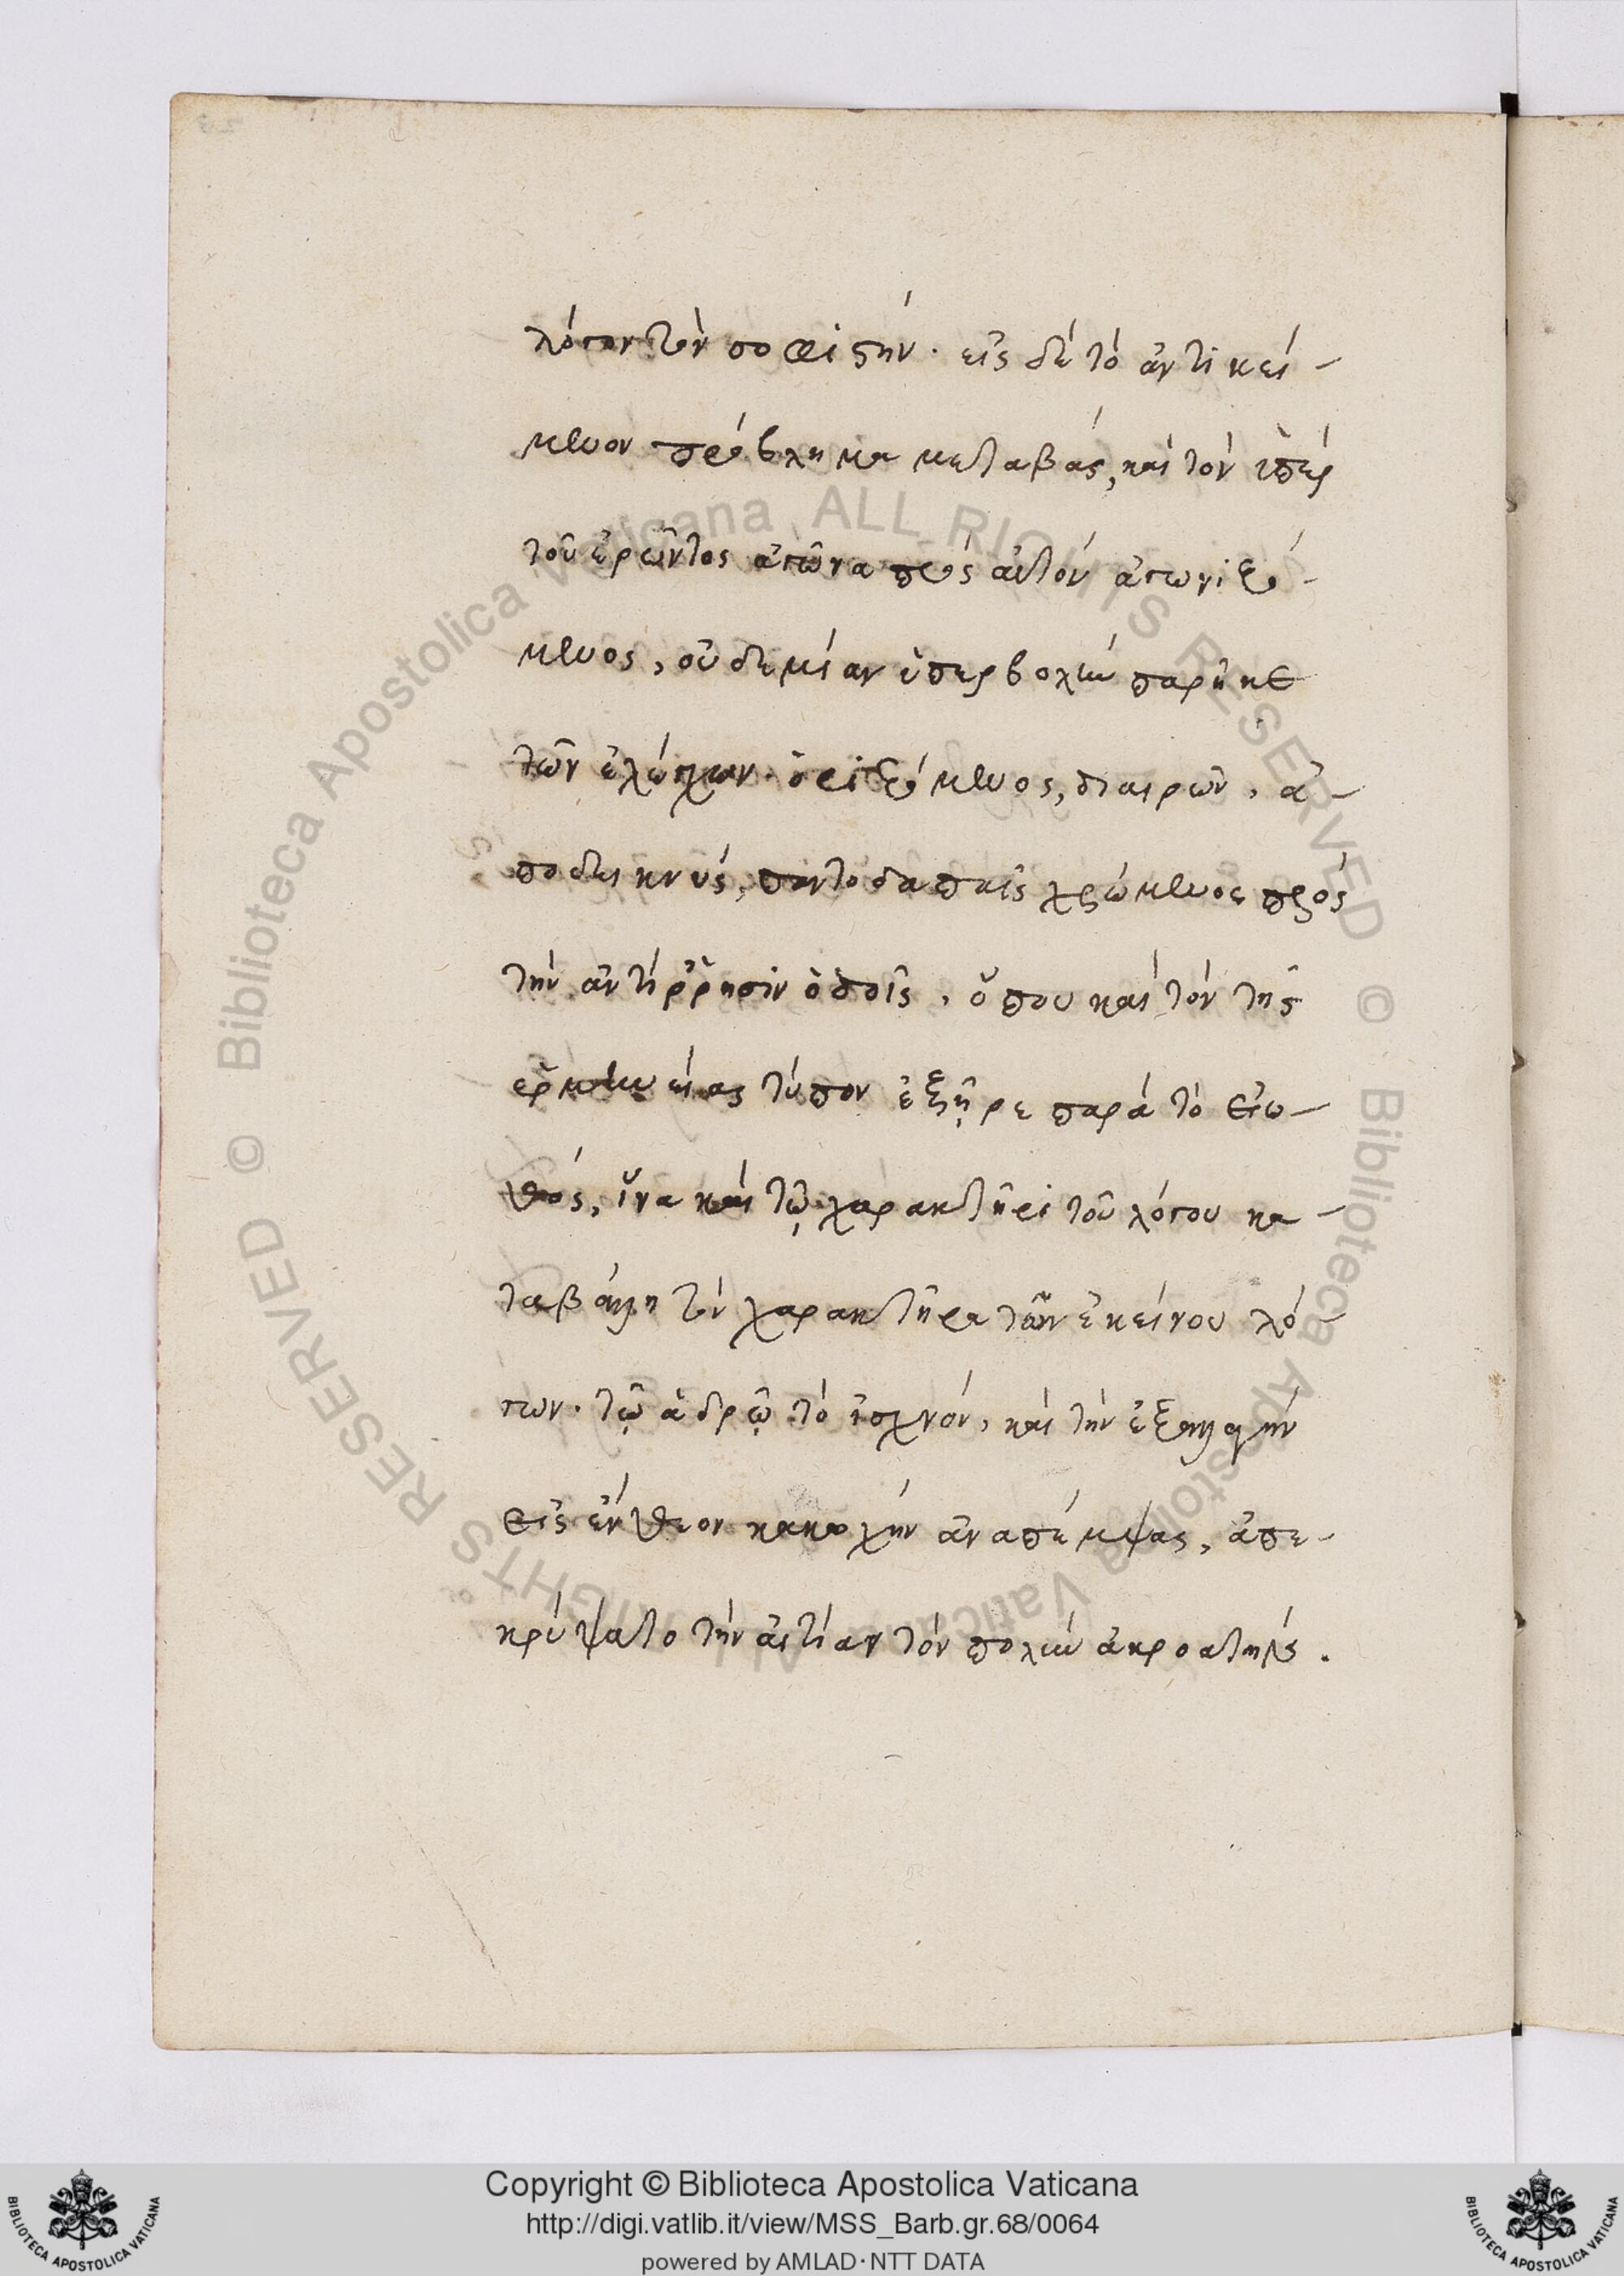 λόγον τὸν σοφιστήν. εἰς δὲ τὸ ἀντικεί-
μενον πρόβλημα μεταβάς, καὶ τὸν ὑπὲρ
τοῦ ἐρῶντος ἀγῶνα πρὸς αὐτὸν ἀγωνιζό-
μενος, οὐδεμίαν ὑπερβολὴν παρῆκε
τῶν ἐλέγχων. ὁριζόμενος, διαιρῶν, ἀ-
ποδεικνύς, παντοδαπαῖς χρώμενος πρὸς
τὴν ἀντίῤῥησιν ὁδοῖς, ὅπου καὶ τὸν τῆς
ἑρμηνείας τύπον ἐξῇρε παρὰ τὸ εἰω-
θός, ἵνα καὶ τῷ χαρακτῆρι τοῦ λόγου κα-
ταβάλῃ τὸν χαρακτῆρα τῶν ἐκείνου λό-
γων. τῷ ἁδρῷ τὸ ἰσχνόν, καὶ τὴν ἐξαλλαγὴν
εἰς ἔνθεον κακοχὴν ἀναπέμψας, ἀπε-
κρύψατο τὴν αἰτίαν τὸν πολὺν ἀκροατής.
Copyright © Biblioteca Apostolica Vaticana
http://digi.vatlib.it/view/MSS_Barb.gr.68/0064
powered by AMLAD·NTT DATA
BIBLIOTECA APOSTOLICA VATICANA
BIBLIOTECA APOSTOLICA VATICANA
© Biblioteca Apostolica Vaticana ALL RIGHTS RESERVED
© Biblioteca Apostolica Vaticana ALL RIGHTS RESERVED